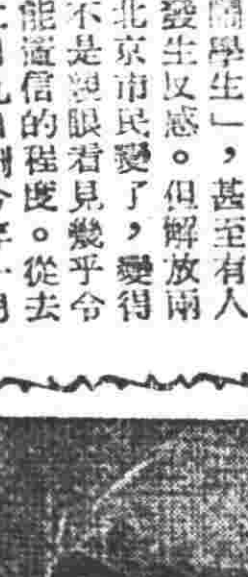 學生」，甚至有人
發生反感。但解放兩
北京市民變了，變得
不是親眼看見幾乎令
能置信的程度。從去